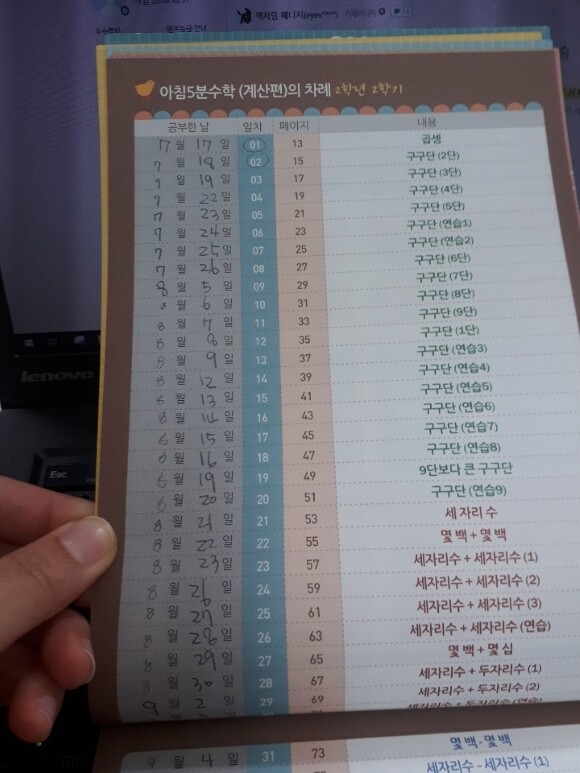 책자람 매니저(eyes****)
아침5분수학 (계산편)의 차례 2학년 2학기
공부한 날 일차 페이지 내용
7월 17일 01 13 곱셈
7월 18일 02 15 구구단 (2단)
7월 19일 03 17 구구단 (3단)
7월 22일 04 19 구구단 (4단)
7월 23일 05 21 구구단 (5단)
7월 24일 06 23 구구단 (연습1)
7월 25일 07 25 구구단 (연습2)
7월 26일 08 27 구구단 (6단)
8월 5일 09 29 구구단 (7단)
8월 6일 10 31 구구단 (8단)
8월 7일 11 33 구구단 (9단)
8월 8일 12 35 구구단 (1단)
8월 9일 13 37 구구단 (연습3)
8월 12일 14 39 구구단 (연습4)
8월 13일 15 41 구구단 (연습5)
8월 14일 16 43 구구단 (연습6)
8월 15일 17 45 구구단 (연습7)
8월 16일 18 47 구구단 (연습8)
8월 19일 19 49 9단보다 큰 구구단
8월 20일 20 51 구구단 (연습9)
8월 21일 21 53 세 자리 수
8월 22일 22 55 몇 백 + 몇 백
8월 23일 23 57 세자리수 + 세자리수 (1)
8월 26일 24 59 세자리수 + 세자리수 (2)
8월 27일 25 61 세자리수 + 세자리수 (3)
8월 28일 26 63 세자리수 + 세자리수 (연습)
8월 29일 27 65 몇 백 + 몇 십
8월 30일 28 67 세자리수 + 두자리수 (1)
9월 2일 29 69 세자리수 + 두자리수 (2)
몇 백 - 몇 백
9월 4일 31 73 세자리수 - 세자리수 (1)
lenovo
Esc